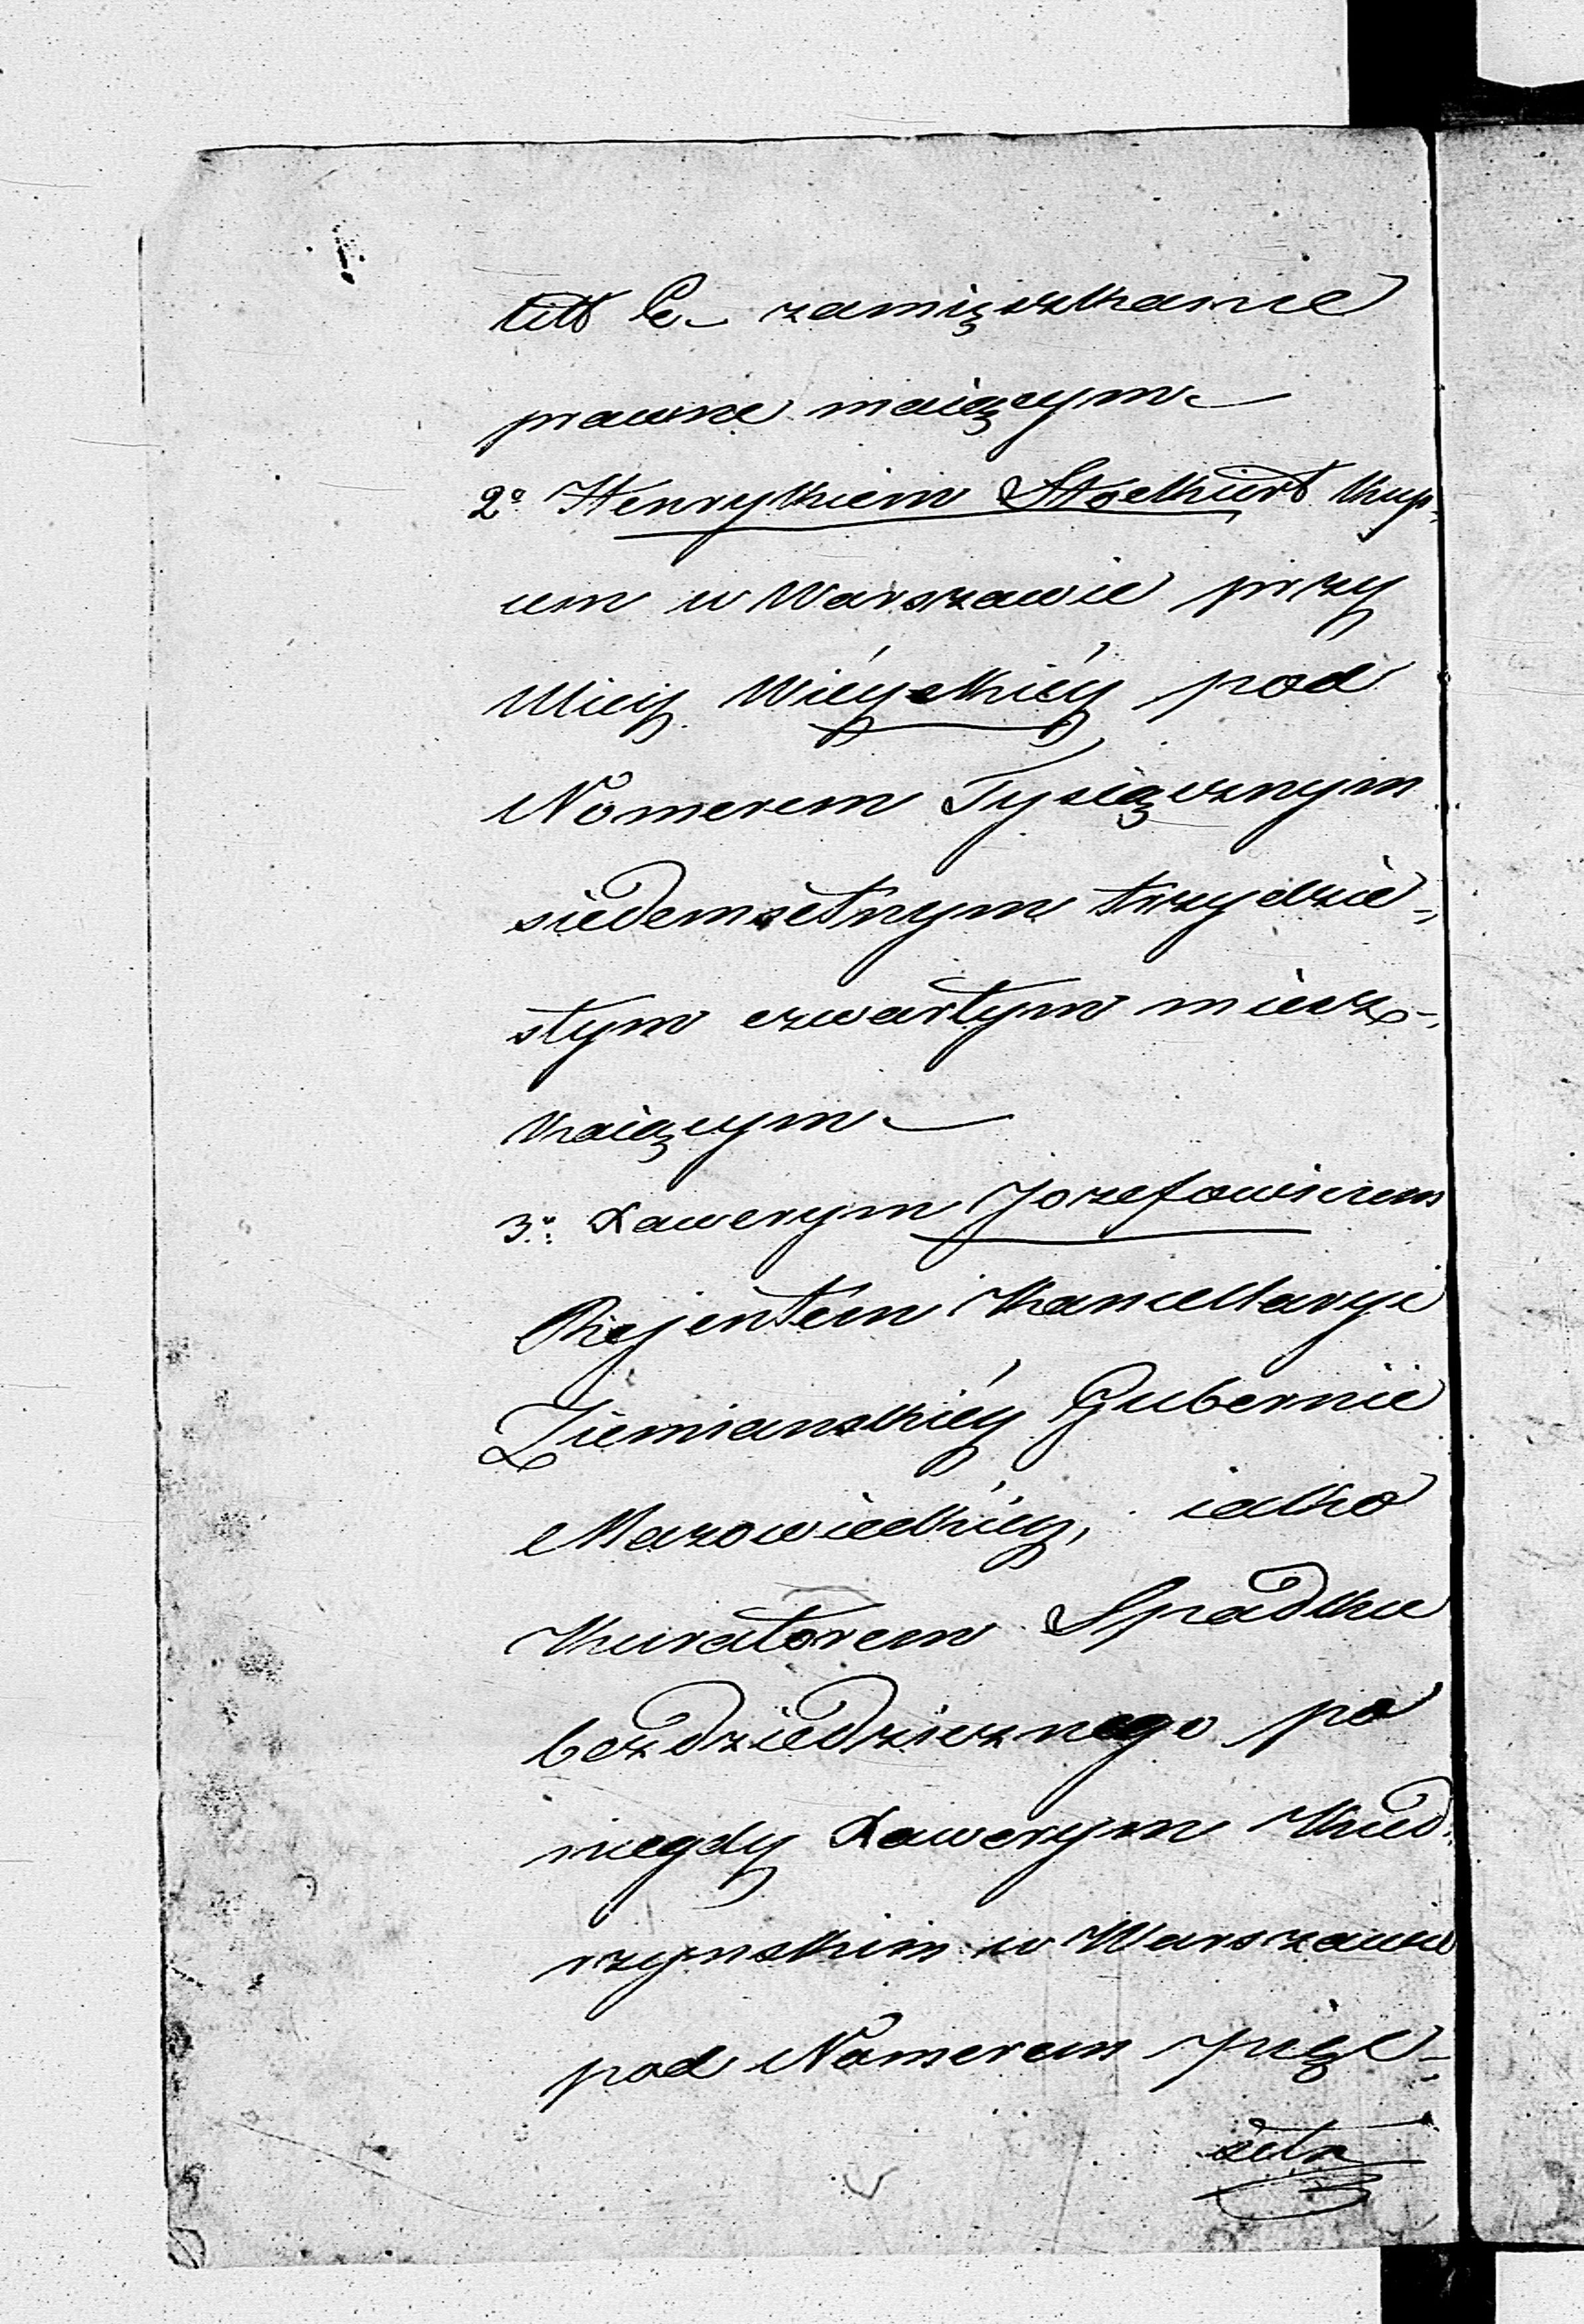 litt C. zamięszkanie
prawne maiącym
2o Henrykiem Stoekiert Kup-
cem w Warszawie przy
Ulicy Wiéyskiéy pod
Nomerem Tysiącznym
siedemsetnym trzydzie-
stym czwartym miesz-
kaiącym
3o Xawerym Jozefowiczem
Rejentem Kancellaryi
Ziemianskiéy Gubernie
Mazowieckiéy, iako
Kuratorem Spadku
bezdziedzicznego po
niegdy Xawerym Kud-
rzynskim w Warszawie
pod Nomerem pięc-
setn